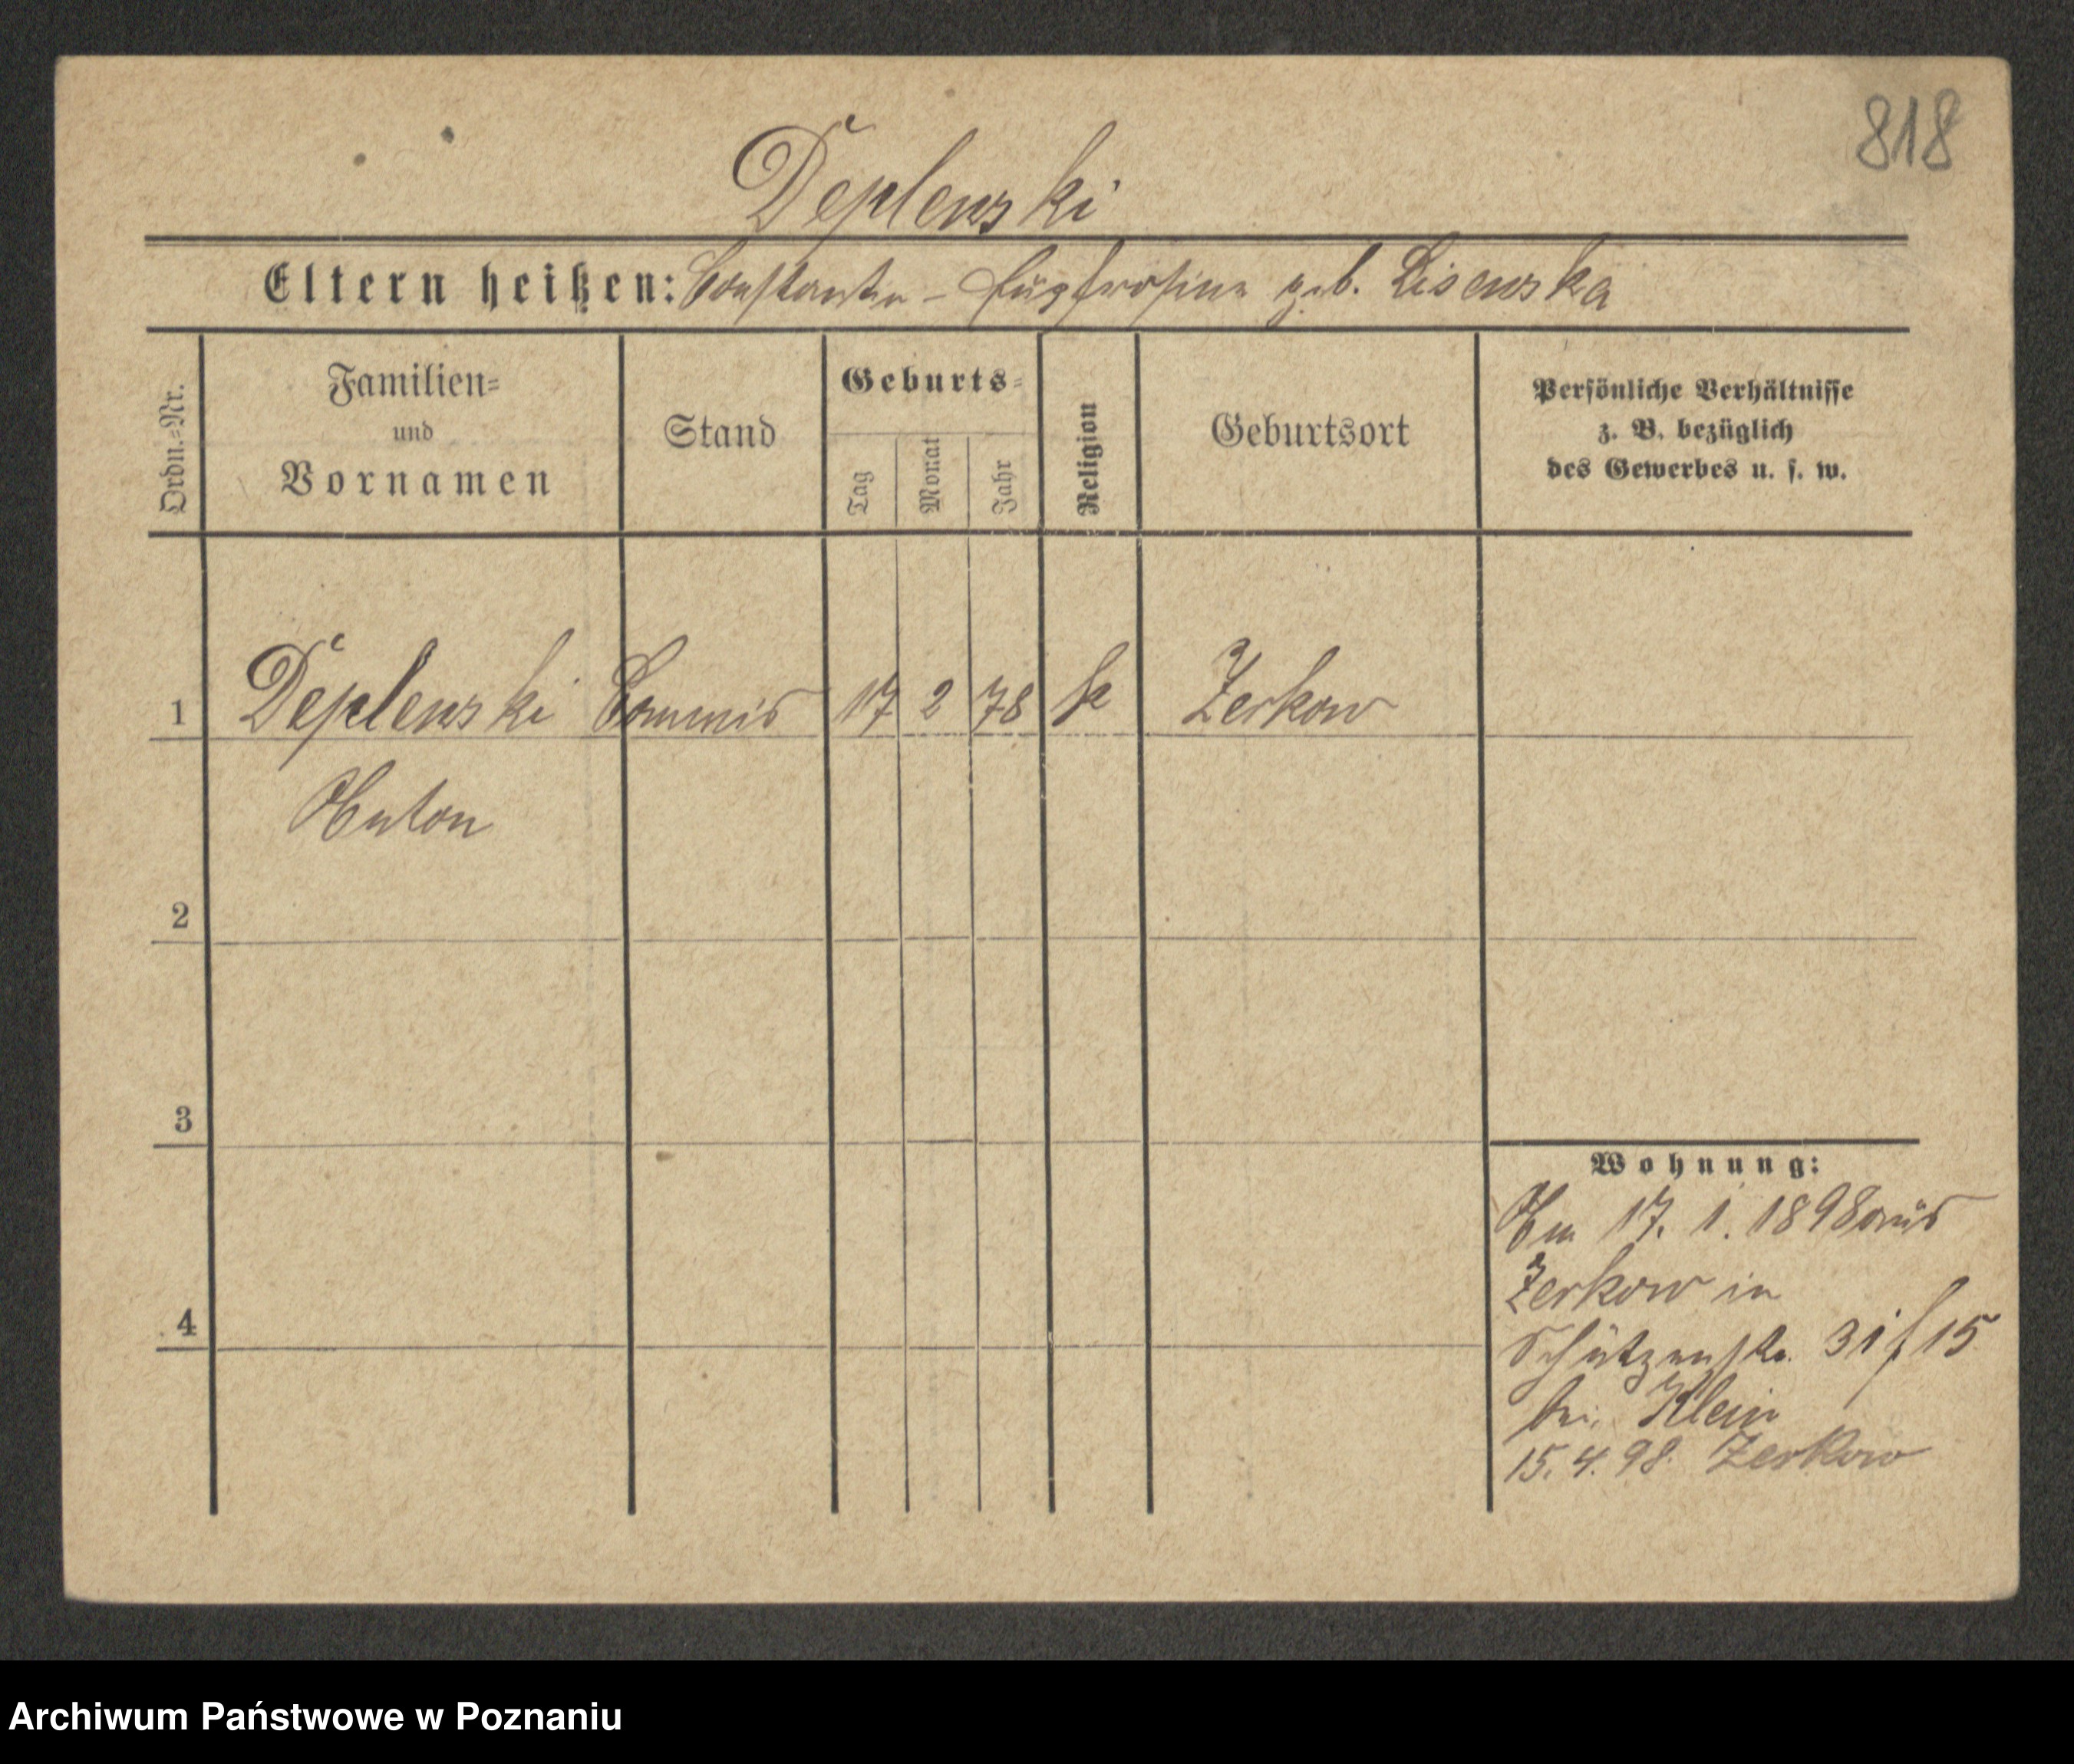 818
Deplewski
Eltern heißen: Constantin - Euphrosine geb. Lisewska
Ordn.=Nr.
Familien=
und
Vornamen
Stand
Geburts=
Tag
Monat
Jahr
Religion
Geburtsort
Persönliche Verhältnisse
z. B. bezüglich
des Gewerbes u. s. w.
1 Deplewski Commis 17 2 78 k Zerkow
Anton
2
3
4
Wohnung:
Am 17. 1. 1898 aus
Zerkow in
Schützenstr. 31 f 15
bei Klein
15. 4. 98. Zerkow
Archiwum Państwowe w Poznaniu